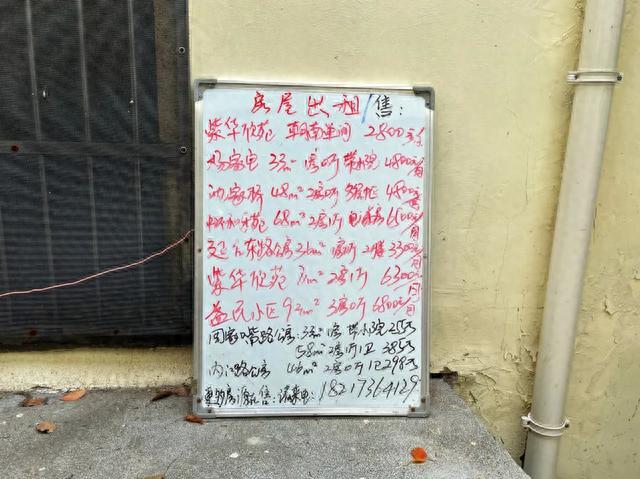 房屋出租/售:
紫华欣苑 朝南单间 2800元/月
杨家宅 33m² 1房1厅 带小院 4800元/月
沈家桥 48m² 2房1厅 4800元/月
68m² 2房1厅 电梯房 6100元/月
延吉东路公房 36m² 1房1厅 2楼 3300元/月
紫华欣苑 71m² 2房1厅 6300元/月
益民小区 92m² 3房1厅 6800元/月
路公房: 33m² 1房 带小院 255万
58m² 2房1厅1卫 385万
内江路公房 46m² 2房1厅1卫 298万
更多房源在售: 请来电: 18217364129